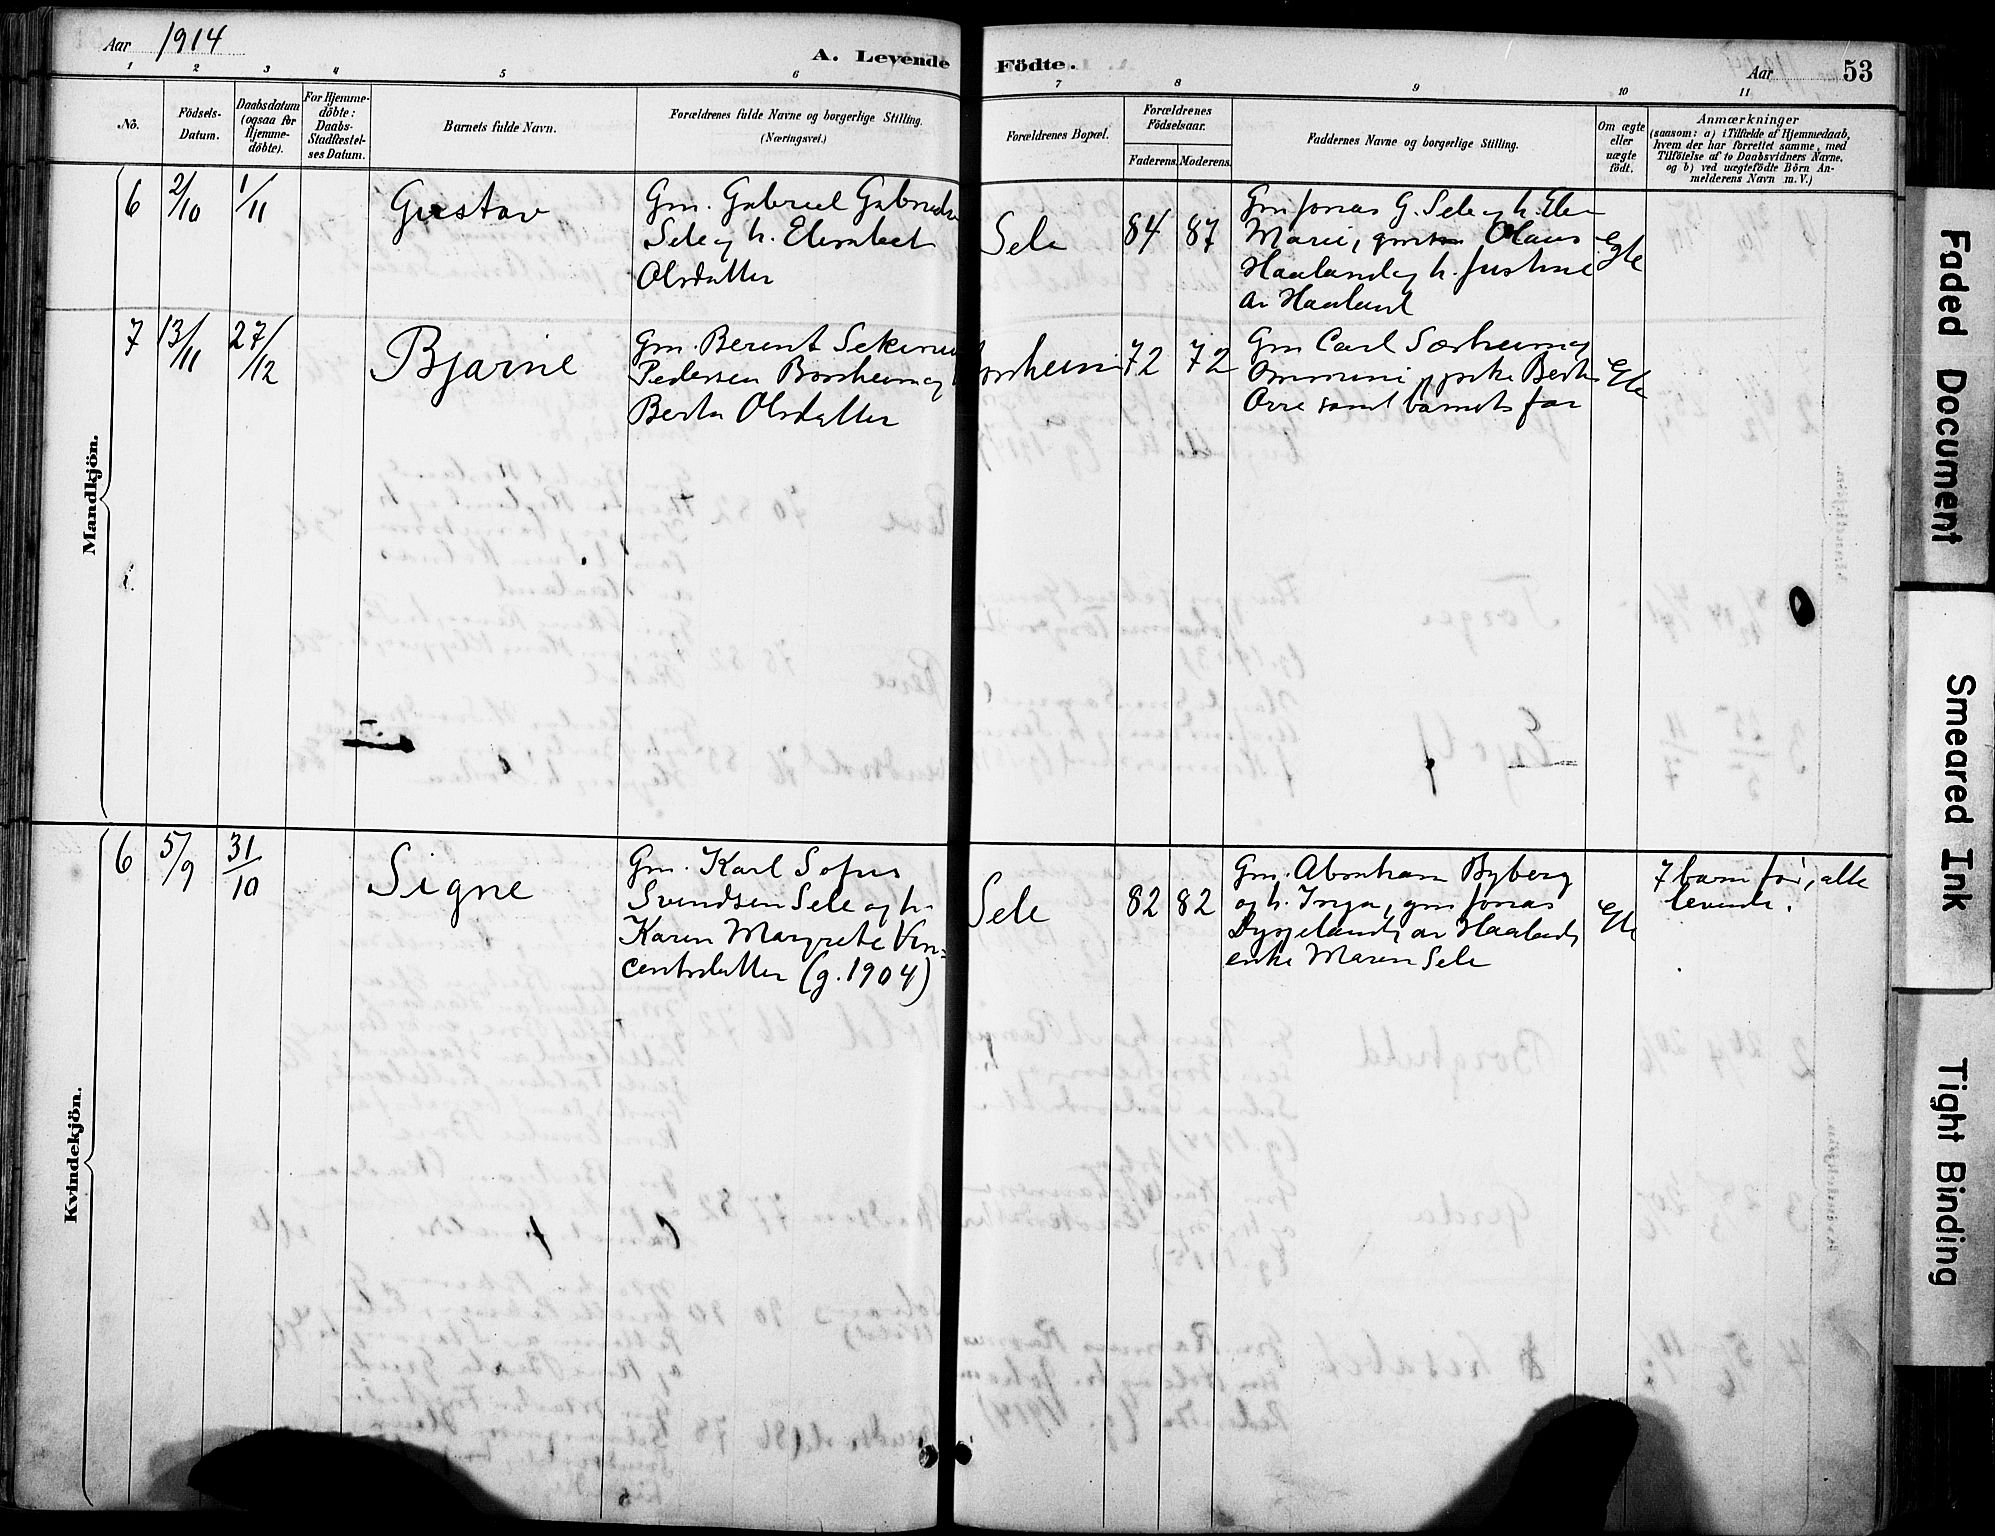 Aar 1914
A. Levende Födte.
Aar
53
1 2 3 4 5 6 7 8 9 10 11
No.
Födsels-
Datum.
Daabsdatum
(ogsaa for
Hjemme-
döbte).
For Hjemme-
döbte:
Daabs-
Stadfæstel-
ses Datum.
Barnets fulde Navn.
Forældrenes fulde Navne og borgerlige Stilling.
(Næringsvei.)
Forældrenes Bopæl.
Forældrenes
Födselsaar.
Faderens. Moderens.
Faddernes Navne og borgerlige Stilling.
Om ægte
eller
uægte
født.
Anmærkninger
(saasom: a) i Tilfælde af Hjemmedaab,
hvem der har forrettet samme, med
Tilföielse af to Daabsvidners Navne,
og b) ved uægtefödte Börn An-
melderens Navn m. V.)
Mandkjön.
6 2/10 1/11 Gustav
Gm. Gabriel Gabrielsen
Sele og h. Elisabet
Olsdatter
Sele 84 87
Gm Jonas G. Sele og h. Elen
Marie, Olaus
Haaland og h. Justine
av Haaland
Egte
7 13/11 27/12 Bjarne
Gm. Berent Sekerius
Pedersen Borsheim og
Berta Olsdatter
Borsheim 72 72
Gm Carl Særheim og
pike Berta
Orre samt barnets far
Egte
Kvindekjön.
6 5/9 31/10 Signe
Gm. Karl Sofus
Svendsen Sele og h.
Karen Margrete Vin=
centsdatter (g. 1904)
Sele 82 82
Gm. Abraham Byberg
og h. Inga, gm Jonas
Dysjeland, av Haaland,
enke Maren Sele
Egte
7 barn før, alle
levende.
Faded Document
Smeared Ink
Tight Binding